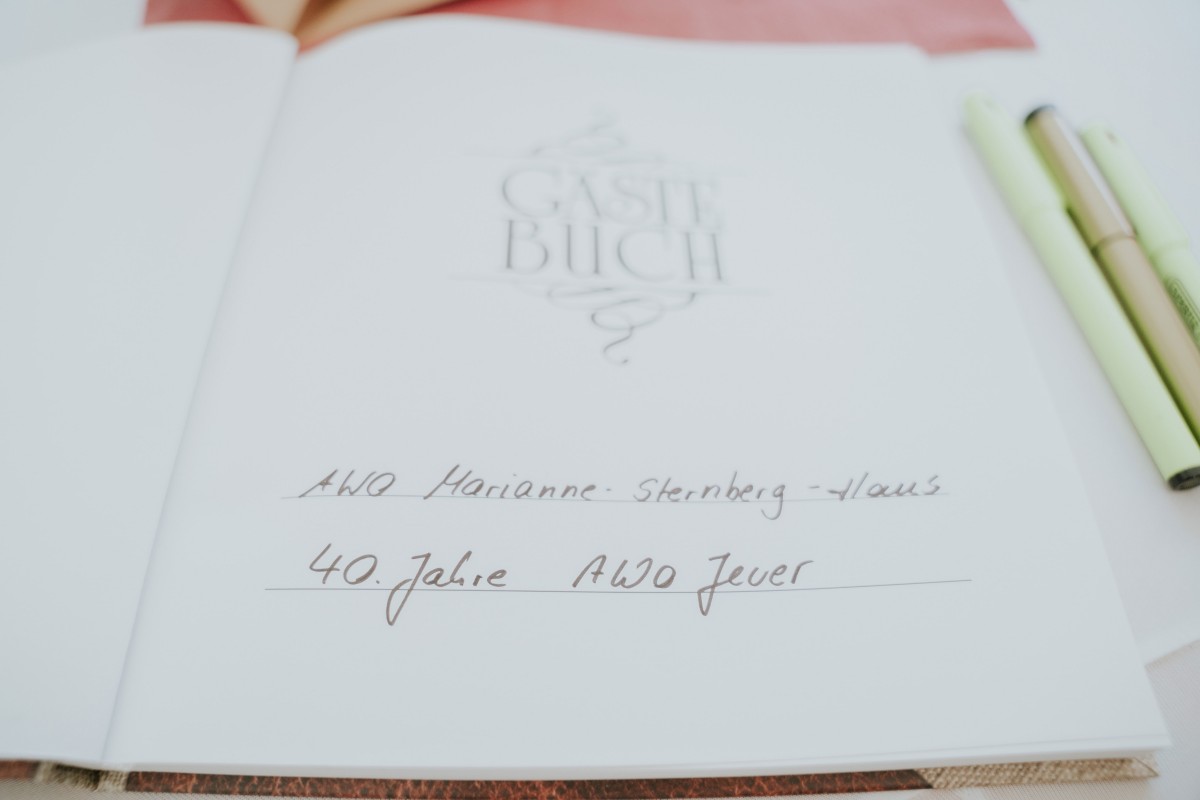 GÄSTE
BUCH
AWO Marianne-Sternberg-Haus
40. Jahre AWO Jever